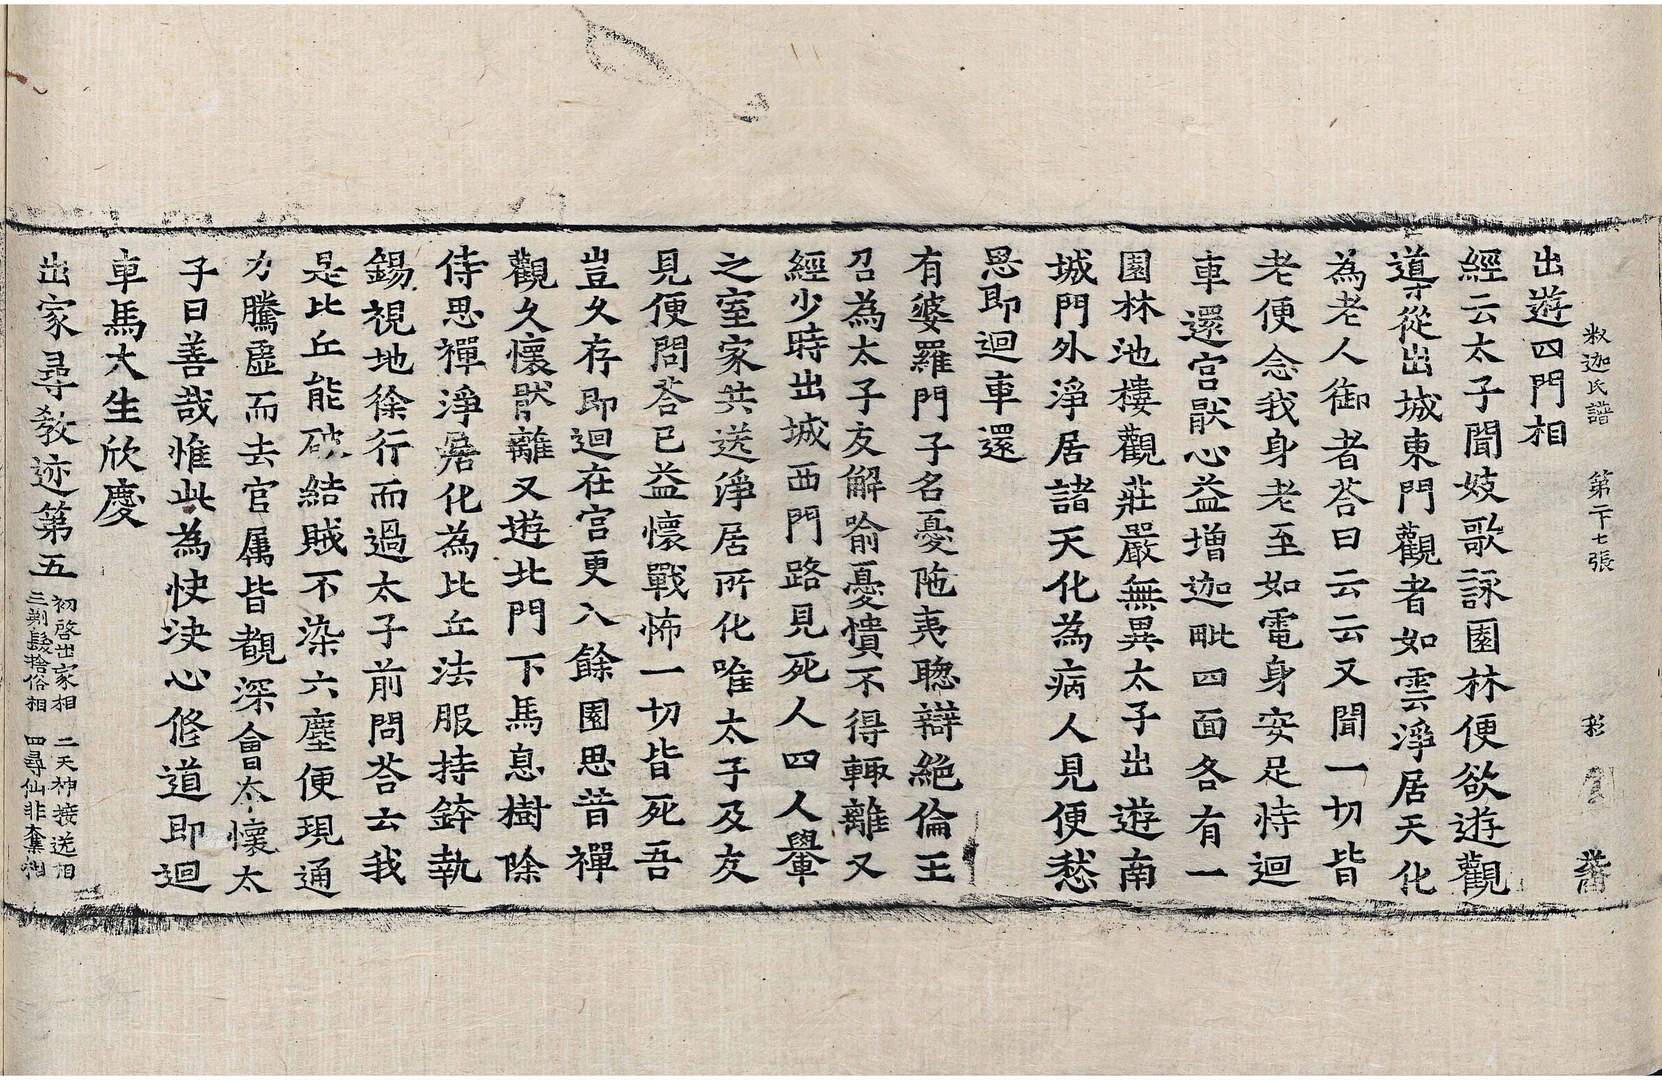 釋迦氏譜 第十七張
出遊四門相
經云太子聞妓歌詠園林便欲遊觀
導從出城東門觀者如雲淨居天化
為老人御者荅曰云云又聞一切皆
老便念我身老至如電身安足恃迴
車還宮猒心益增迦毗四面各有一
園林池樓觀莊嚴無異太子出遊南
城門外淨居諸天化為病人見便愁
思即迴車還
有婆羅門子名憂陁夷聦辯絕倫王
召為太子友解喻憂憒不得輙離又
經少時出城西門路見死人四人轝
之室家共送淨居所化唯太子及友
見便問荅已益懷戰怖一切皆死吾
豈久存即迴在宮更入餘園思昔禪
觀久懷猒離又遊北門下馬息樹除
侍思禪淨居化為比丘法服持鉢執
錫視地徐行而過太子前問荅云我
是比丘能破結賊不染六塵便現通
力騰虛而去官属皆覩深會本懷太
子曰善哉惟此為快決心修道即迴
車馬大生欣慶
出家尋教迹第五 初啓出家相 二天神接送相
三剃髮捨俗相 四尋仙非奪相